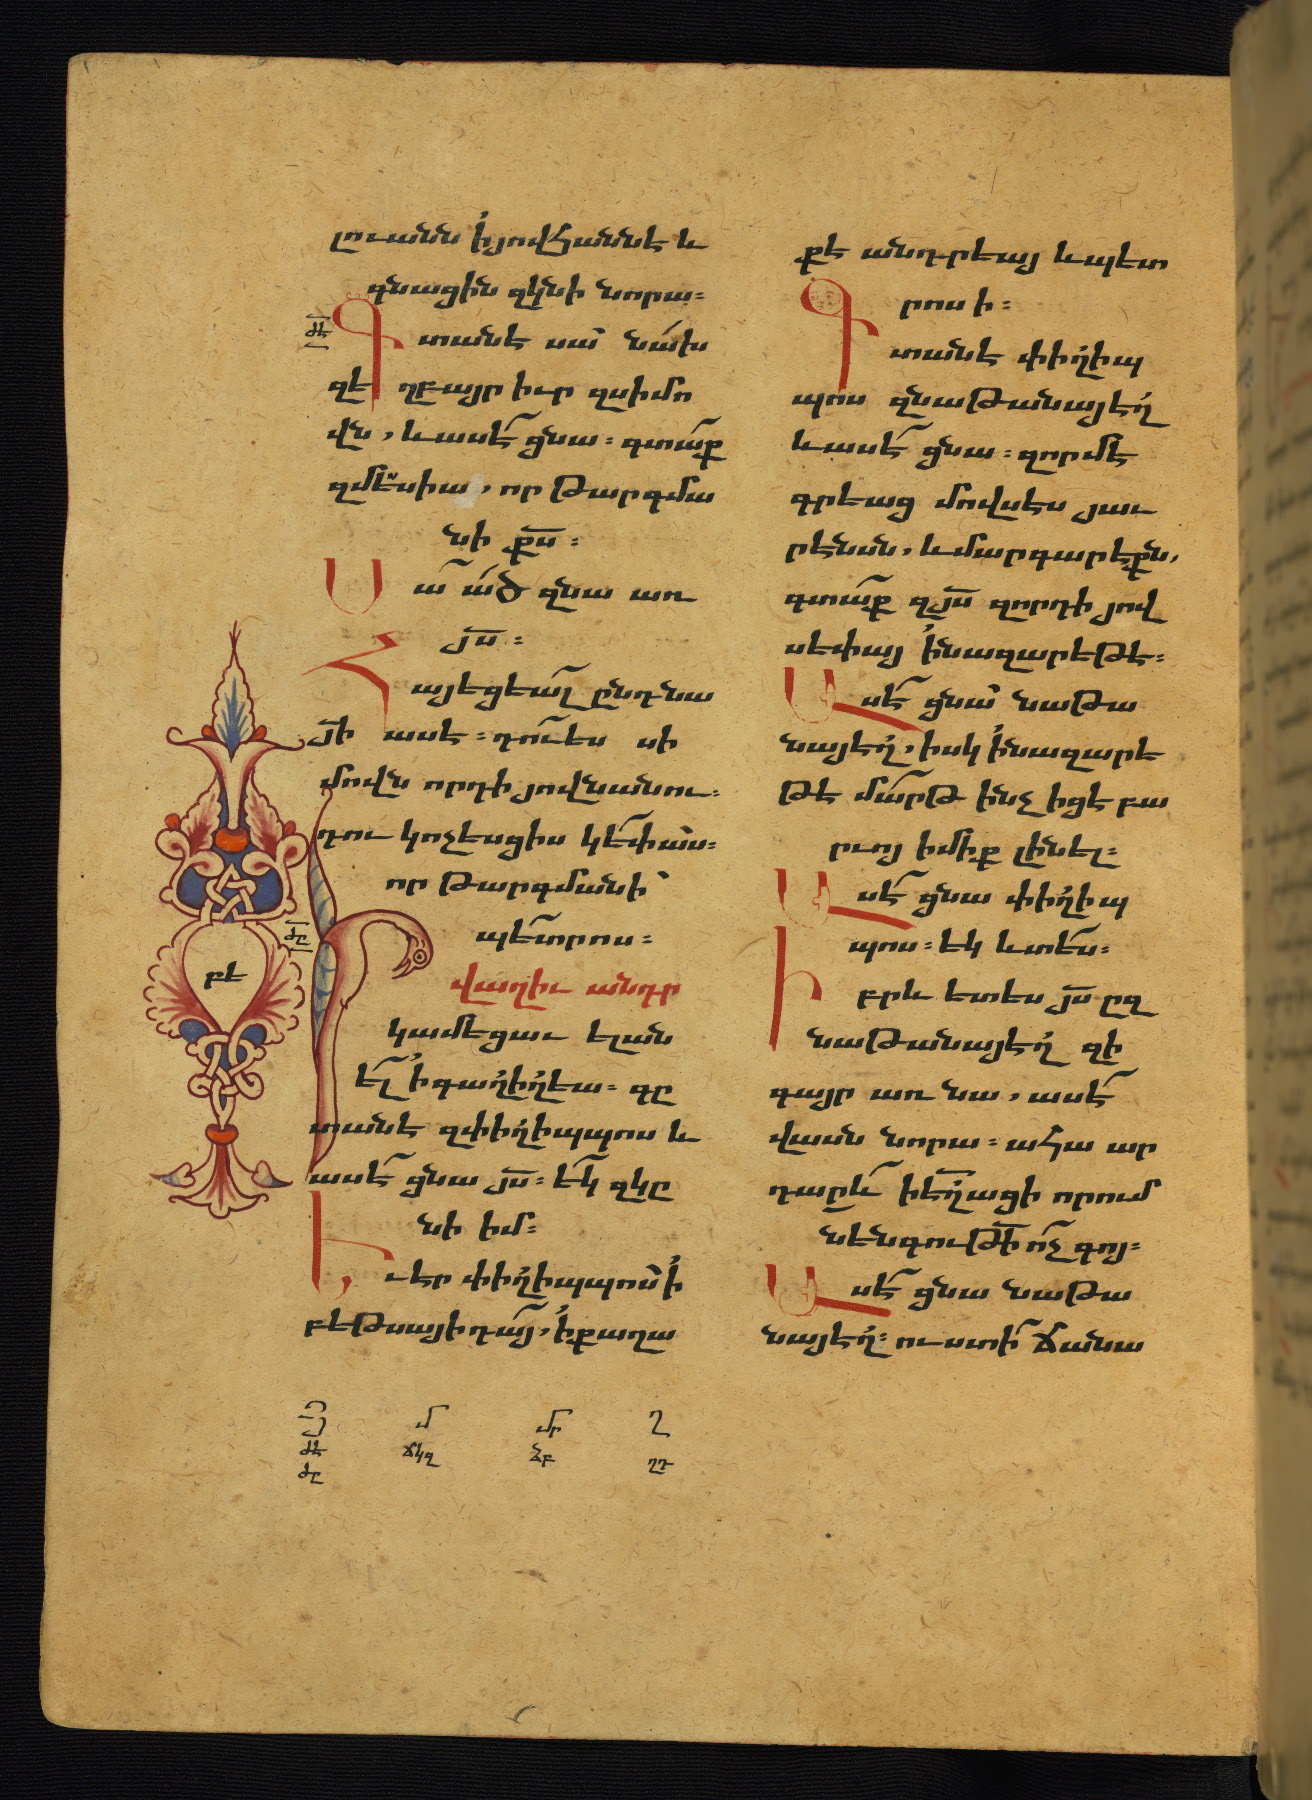 լուանն ՚ի յովՀաննէ և
գնացին զկնի նորա։
ժէ
Գտանէ սա՝ նախ
զէղբայր իւր զսիմո
վն, և ասէ ցնա։ գտաք
զմեսիա, որ թարգմա
նի քս։
Սա ած զնա առ
յս։
Հայեցեալ ընդ նա
յի ասէ։ դու ես սի
մովն որդի յովնանու։
դու կոչեսցիս կեփաս։
որ թարգմանի՝
պետրոս։
ժը
բե
վաղիւ անդր
կամեցաւ ելան
ել ՚ի գաղիղեա։ գը
տանէ զփիղիպպոս և
ասէ ցնա յս։ եկ զկը
նի իմ։
Եւ էր փիղիպպոս՝ ՚ի
բեթսայիդայ, ՚ի քաղա
քէ անդրեայ և պետ
րոսի։
Գտանէ փիղիպ
պոս զնաթանայեղ
և ասէ ցնա։ զորմէ
գրեաց մովսես յաւ
րէնսն, և մարգարէքն,
գտաք զյս զորդի յով
սեփայ ՚ի նազարեթե։
Ասէ ցնա՝ նաթա
նայեղ, իսկ ՚ի նազարե
թե մարթ ինչ իցե բա
րւոյ իմիք լինել։
Ասէ ցնա փիղիպ
պոս։ եկ և տես։
Իբրև ետես յս ըզ
նաթանայեղ զի
գայր առ նա, ասէ
վասն նորա։ աՀա ար
դարև իեղացի որում
նենգութի ոչ գոյ։
Ասէ ցնա նաթա
նայեղ։ ուստի ճանա
ժէ
ժը
մ
ճկզ
մր
ձբ
ղ
ղդ